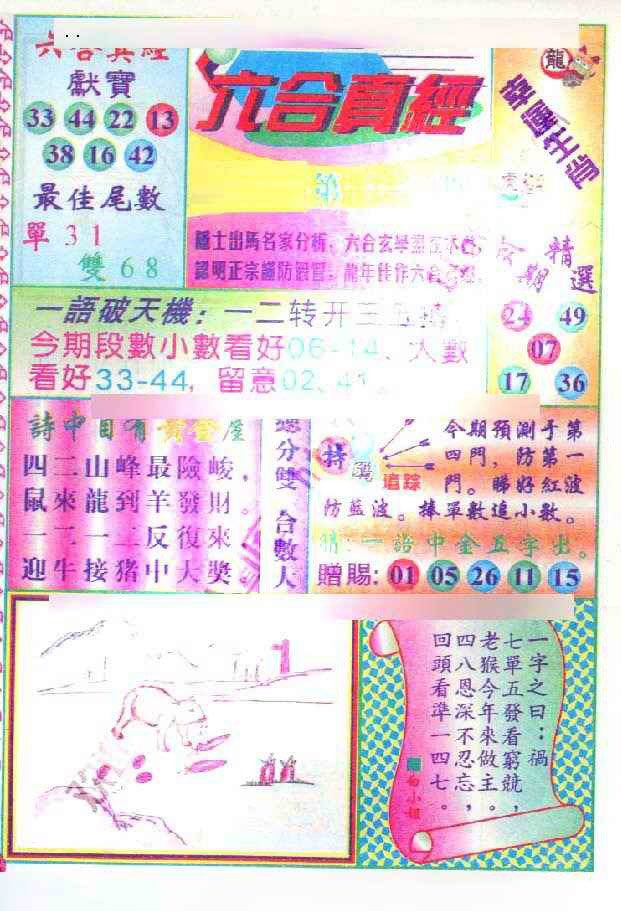 六合真經
獻寶
33 44 22 13
38 16 42
最佳尾數
單31
雙68
六合真經
龍
隱士出馬名家分析，六合玄學盡在本
認明正宗謹防假冒，龍年佳作六合
精選
期
24 49
07
17 36
一語破天機：一二转开三五
今期段數小數看好06-14、大數
看好33-44，留意02、41。
詩中自有黃金屋
四二山峰最險峻，
鼠來龍到羊發財。
一二一二反復來
迎牛接豬中大獎。
總分雙 合數大
特
追踪
今期預測于第
四門，防第一
門。睇好紅波
防藍波。捧單數追小數。
猜：一語中金五字出。
贈賜：01 05 26 11 15
1
一字之曰：禍
七單五發看窮競，
老猴今年來做主。
四八恩深不忍忘，
回頭看準一四七。
白小姐